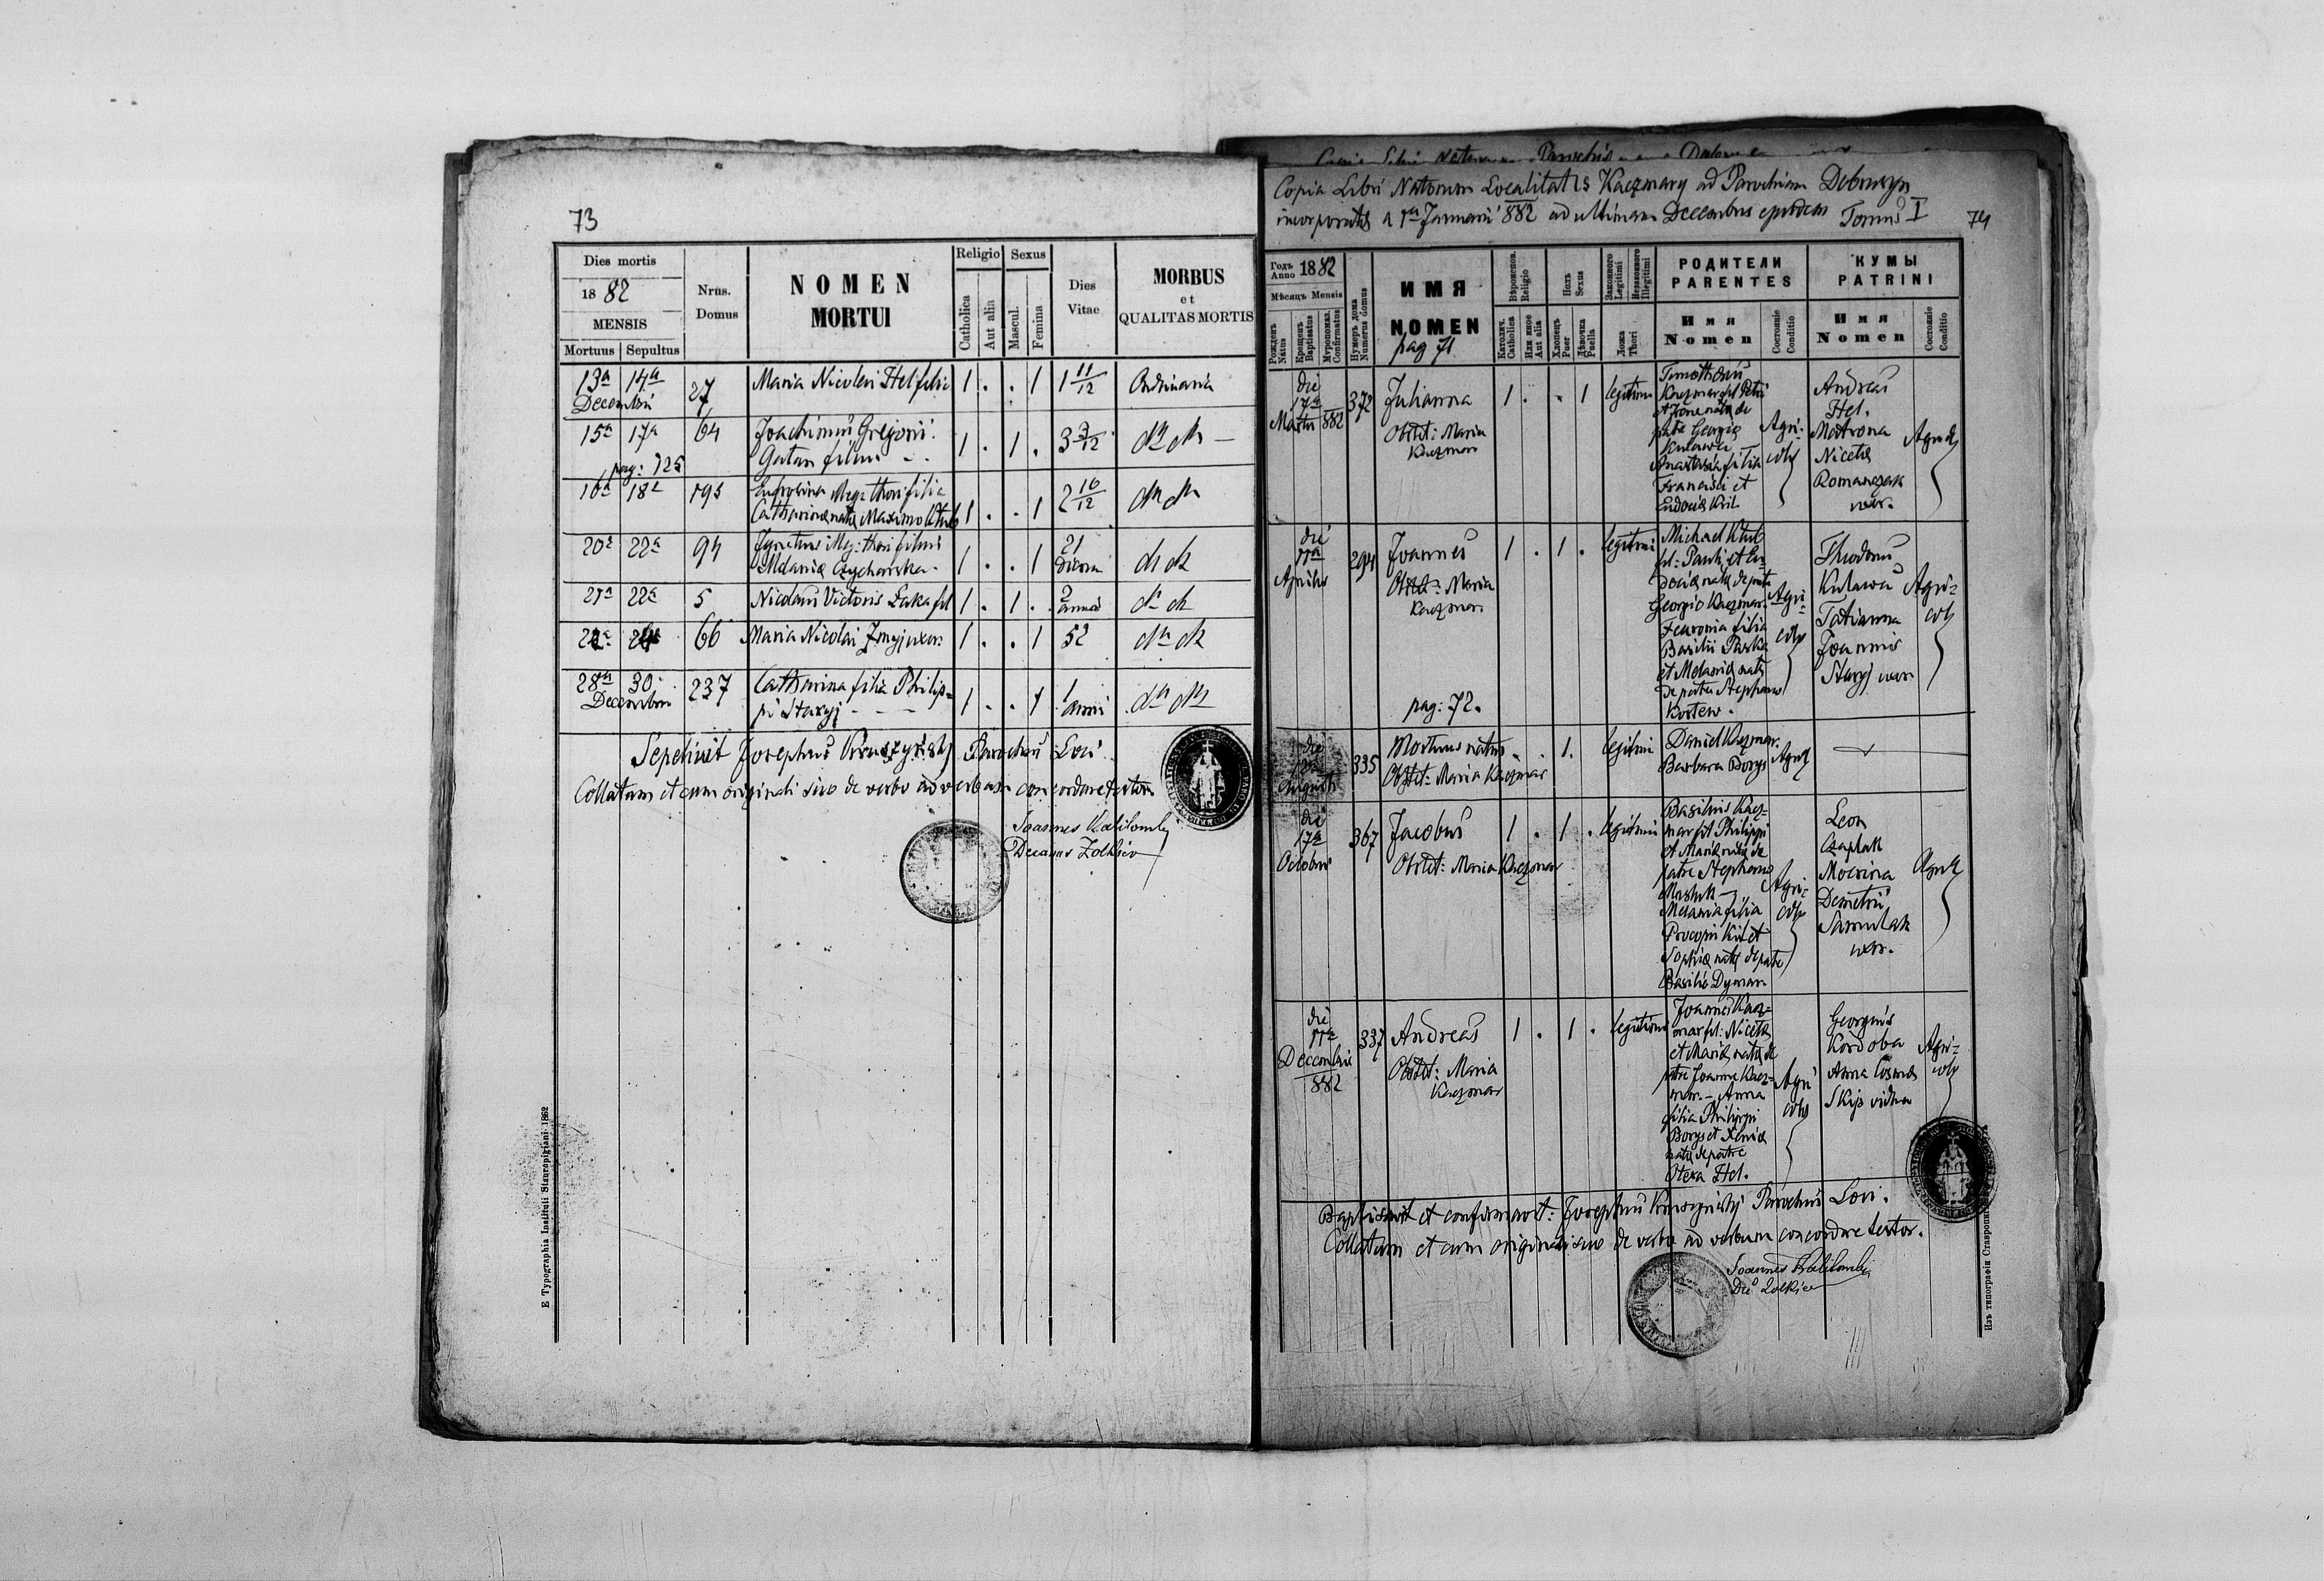 73
Dies mortis
18 82
MENSIS
Mortuus
Sepultus
Nrus.
Domus
NOMEN
MORTUI
Religio
Catholica
Aut alia
Sexus
Mascul.
Femina
Dies
Vitae
MORBUS
et
QUALITAS MORTIS
13a 14a 27 Maria Nicolai Hel filia 1 . . 1 1 11/12 Ordinaria
Decembris
15a 17a 64 Joachimus Gregorii 1 . 1 . 3 3/12 dto dto
Gatan filius
pag: 125
16a 18a 195 Eufrosina illegthori filia
Catharinae natae Maximo Klub 1 . . 1 2 10/12 dto dto
20a 22a 94 Ignatius illeg: thori filius 1 . . 1 21 dto dto
Melaniae dierum
21a 22a 5 Nicolaus Victoris Luka fil 1 . 1 . 2 dto dto
annor
66 Maria Nicolai Zmyj uxor 1 . . 1 52 dto dto
28a 30 237 Catharina filia Philip= 1 . . 1 1 dto dto
Decembris pi Staryj anni
Sepelivit Josephus Kruszyński Parochus Loci.
Collatum et cum originali suo de verbo ad verbum concordare testor
Joannes
Decanus Zolkiew
E Typographia Instituti Stauropigiani 1862
Copia Libri Natorum Localitatis Kaczmary ad Parochiam Dobrosyn
incorporatae a 1ma Januarii 882 ad ultimam Decembris ejusdem Tomus I
74
Годъ
Anno 1882
Мѣсяцъ Mensis
Рожденъ
Natus
Крещенъ
Baptisatus
Муропомаз.
Confirmatus
Нумеръ дома
Numerus domus
ИМЯ
NOMEN
pag 71
Вѣроиспов.
Religio
Католич.
Catholica
Или иное
Aut alia
Полъ
Sexus
Хлопецъ
Puer
Дѣвочка
Puella
Законного
Legitimi
Незаконного
Illegitimi
Ложа
Thori
РОДИТЕЛИ
PARENTES
Имя
Nomen
Состояніе
Conditio
КУМЫ
PATRINI
Имя
Nomen
Состояніе
Conditio
die
17a
Martii 882
372
Julianna
Obstet: Maria
Kaczmar
1 . . 1 legitimi
Timotheus
Kaczmar fil Petri
patre Georgio
Kulawa
Anastasia filia
Francisci et
Eudociae Kril
Agri=
colae
Andreas
Hel.
Matrona
Nicetae
Romanczak
uxor.
Agricolae
die
11a
Aprilis
294
Joannes
Obstet: Maria
Kaczmar
1 . 1 . legitimi
Michael Klub
fil: Pauli et Eu=
dociae natae de patre
Georgio Kaczmar.
Fewronia filia
Basilii Paska
et Melaniae natae
de patre Stephano
Kostew.
Agri=
colae
Theodorus
Kulawa
Tatianna
Joannis
Staryj uxor
Agri=
colae
pag: 72.
die
12a
Augusti
335
Mortuus natus
Obstet: Maria Kaczmar
. . 1. legitimi
Daniel Kaczmar.
Barbara Borys
Agricolae
die
17a
Octobris
367
Jacobus
Obstet: Maria Kaczmar
1 . 1 . legitimi
Basilius Kacz=
mar fil Philippi
et Mariae natae de
patre Stephano
Melania filia
Procopii Kit et
Sophiae natae de patre
Basilio Dyman
Agri=
colae
Leon
Czaplak
Mocrina
Demetrii
Samulak
uxor.
Agricolae
die
11a
Decembris
882
337
Andreas
Obstet: Maria
Kaczmar
1 . 1 . legitimi
Joannes Kacz=
mar fil: Nicetae
et Mariae natae de
patre Joanne Kacz=
mar. - Anna
filia Philippi
Borys et Xeniae
natae de patre
Olexa Hel.
Agri
colae
Georgius
Kordoba
Anna Cosmae
Skip vidua
Agri=
colae
Baptisavit et confirmavit: Josephus Kruszyński Parochus Loci.
Collatum et cum originali suo de verbo ad verbum concordare testor.
Joannes
Dec Zolkiew